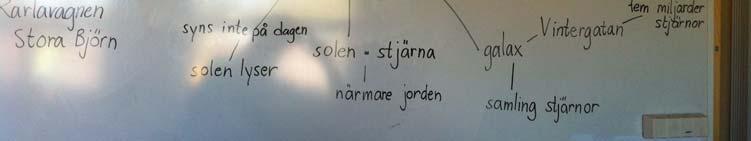 Karlavagnen
Stora Björn
syns inte på dagen
solen lyser
solen - stjärna
närmare jorden
galax
samling stjärnor
Vintergatan
fem miljarder
stjärnor